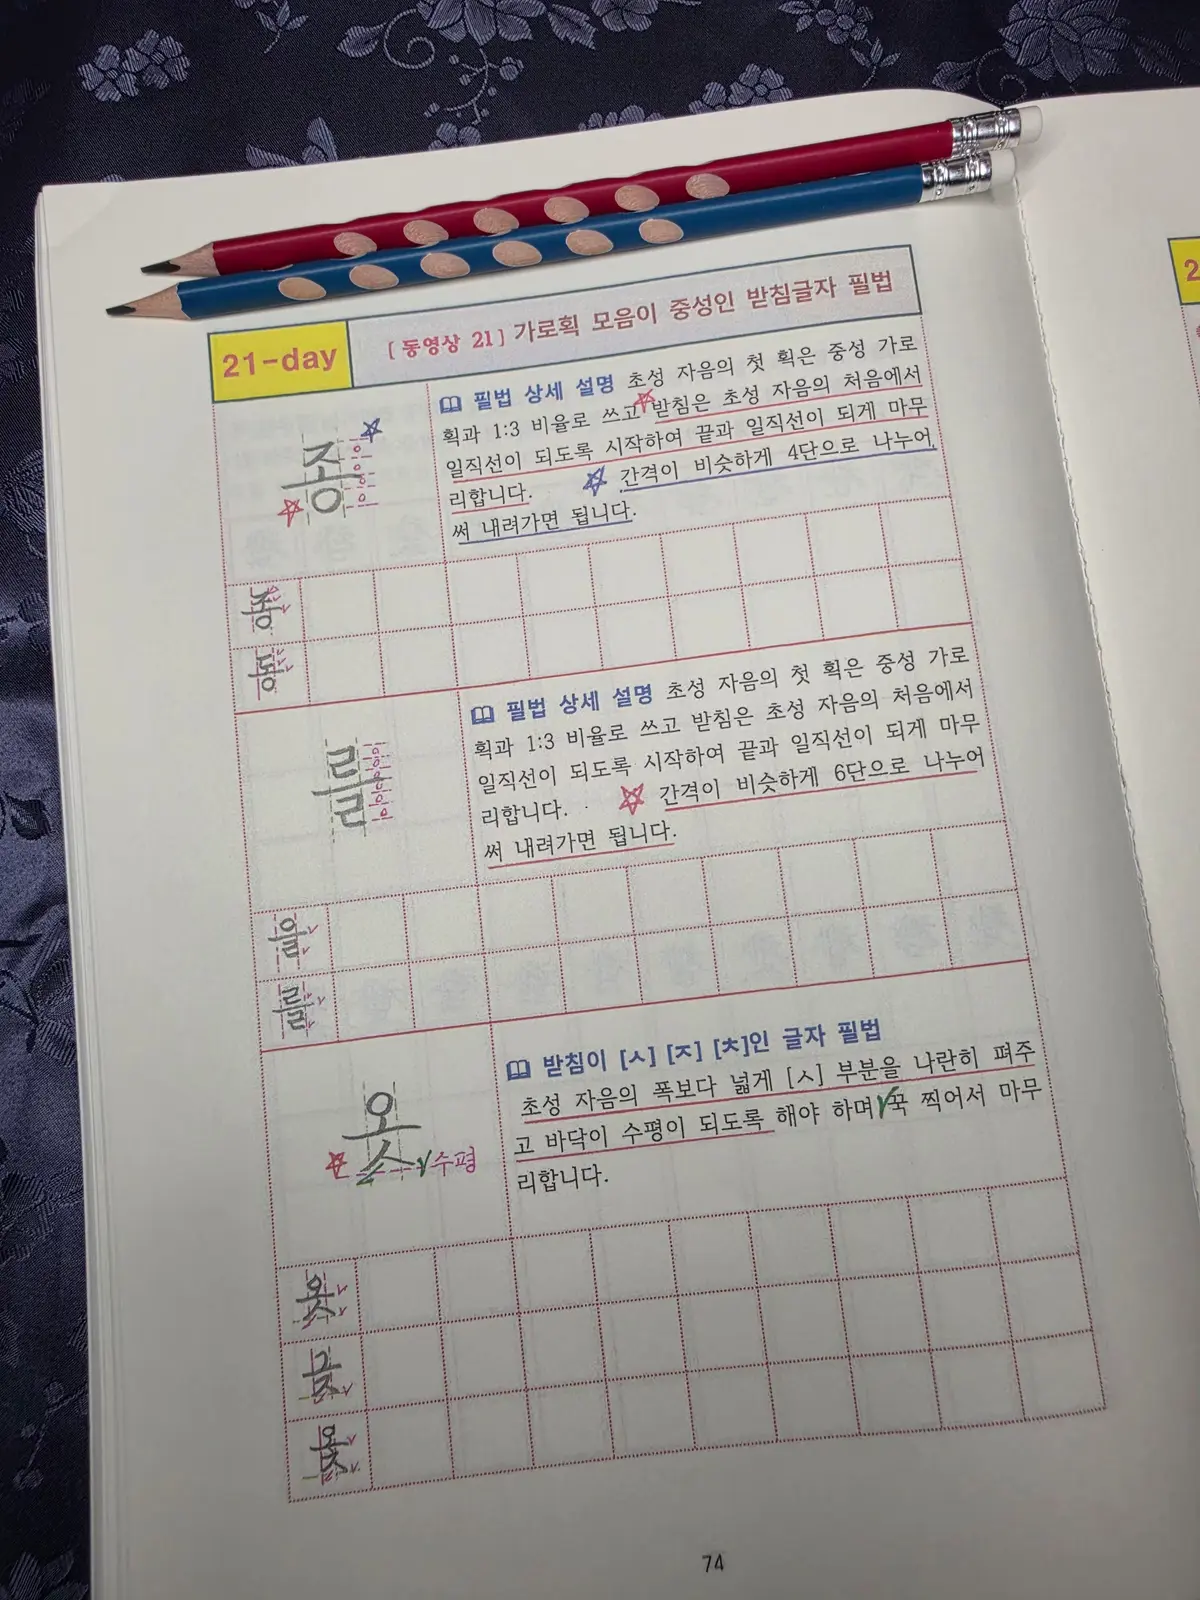 21-day
[ 동영상 21 ] 가로획 모음이 중성인 받침글자 필법
필법 상세 설명 초성 자음의 첫 획은 중성 가로
획과 1:3 비율로 쓰고 받침은 초성 자음의 처음에서
일직선이 되도록 시작하여 끝과 일직선이 되게 마무
리합니다. 간격이 비슷하게 4단으로 나누어
써 내려가면 됩니다.
종
종
동
필법 상세 설명 초성 자음의 첫 획은 중성 가로
획과 1:3 비율로 쓰고 받침은 초성 자음의 처음에서
일직선이 되도록 시작하여 끝과 일직선이 되게 마무
리합니다. 간격이 비슷하게 6단으로 나누어
써 내려가면 됩니다.
를
을
를
받침이 [ㅅ] [ㅈ] [ㅊ]인 글자 필법
초성 자음의 폭보다 넓게 [ㅅ] 부분을 나란히 펴주
고 바닥이 수평이 되도록 해야 하며 꾹 찍어서 마무
리합니다.
옷
수평
옷
74
2